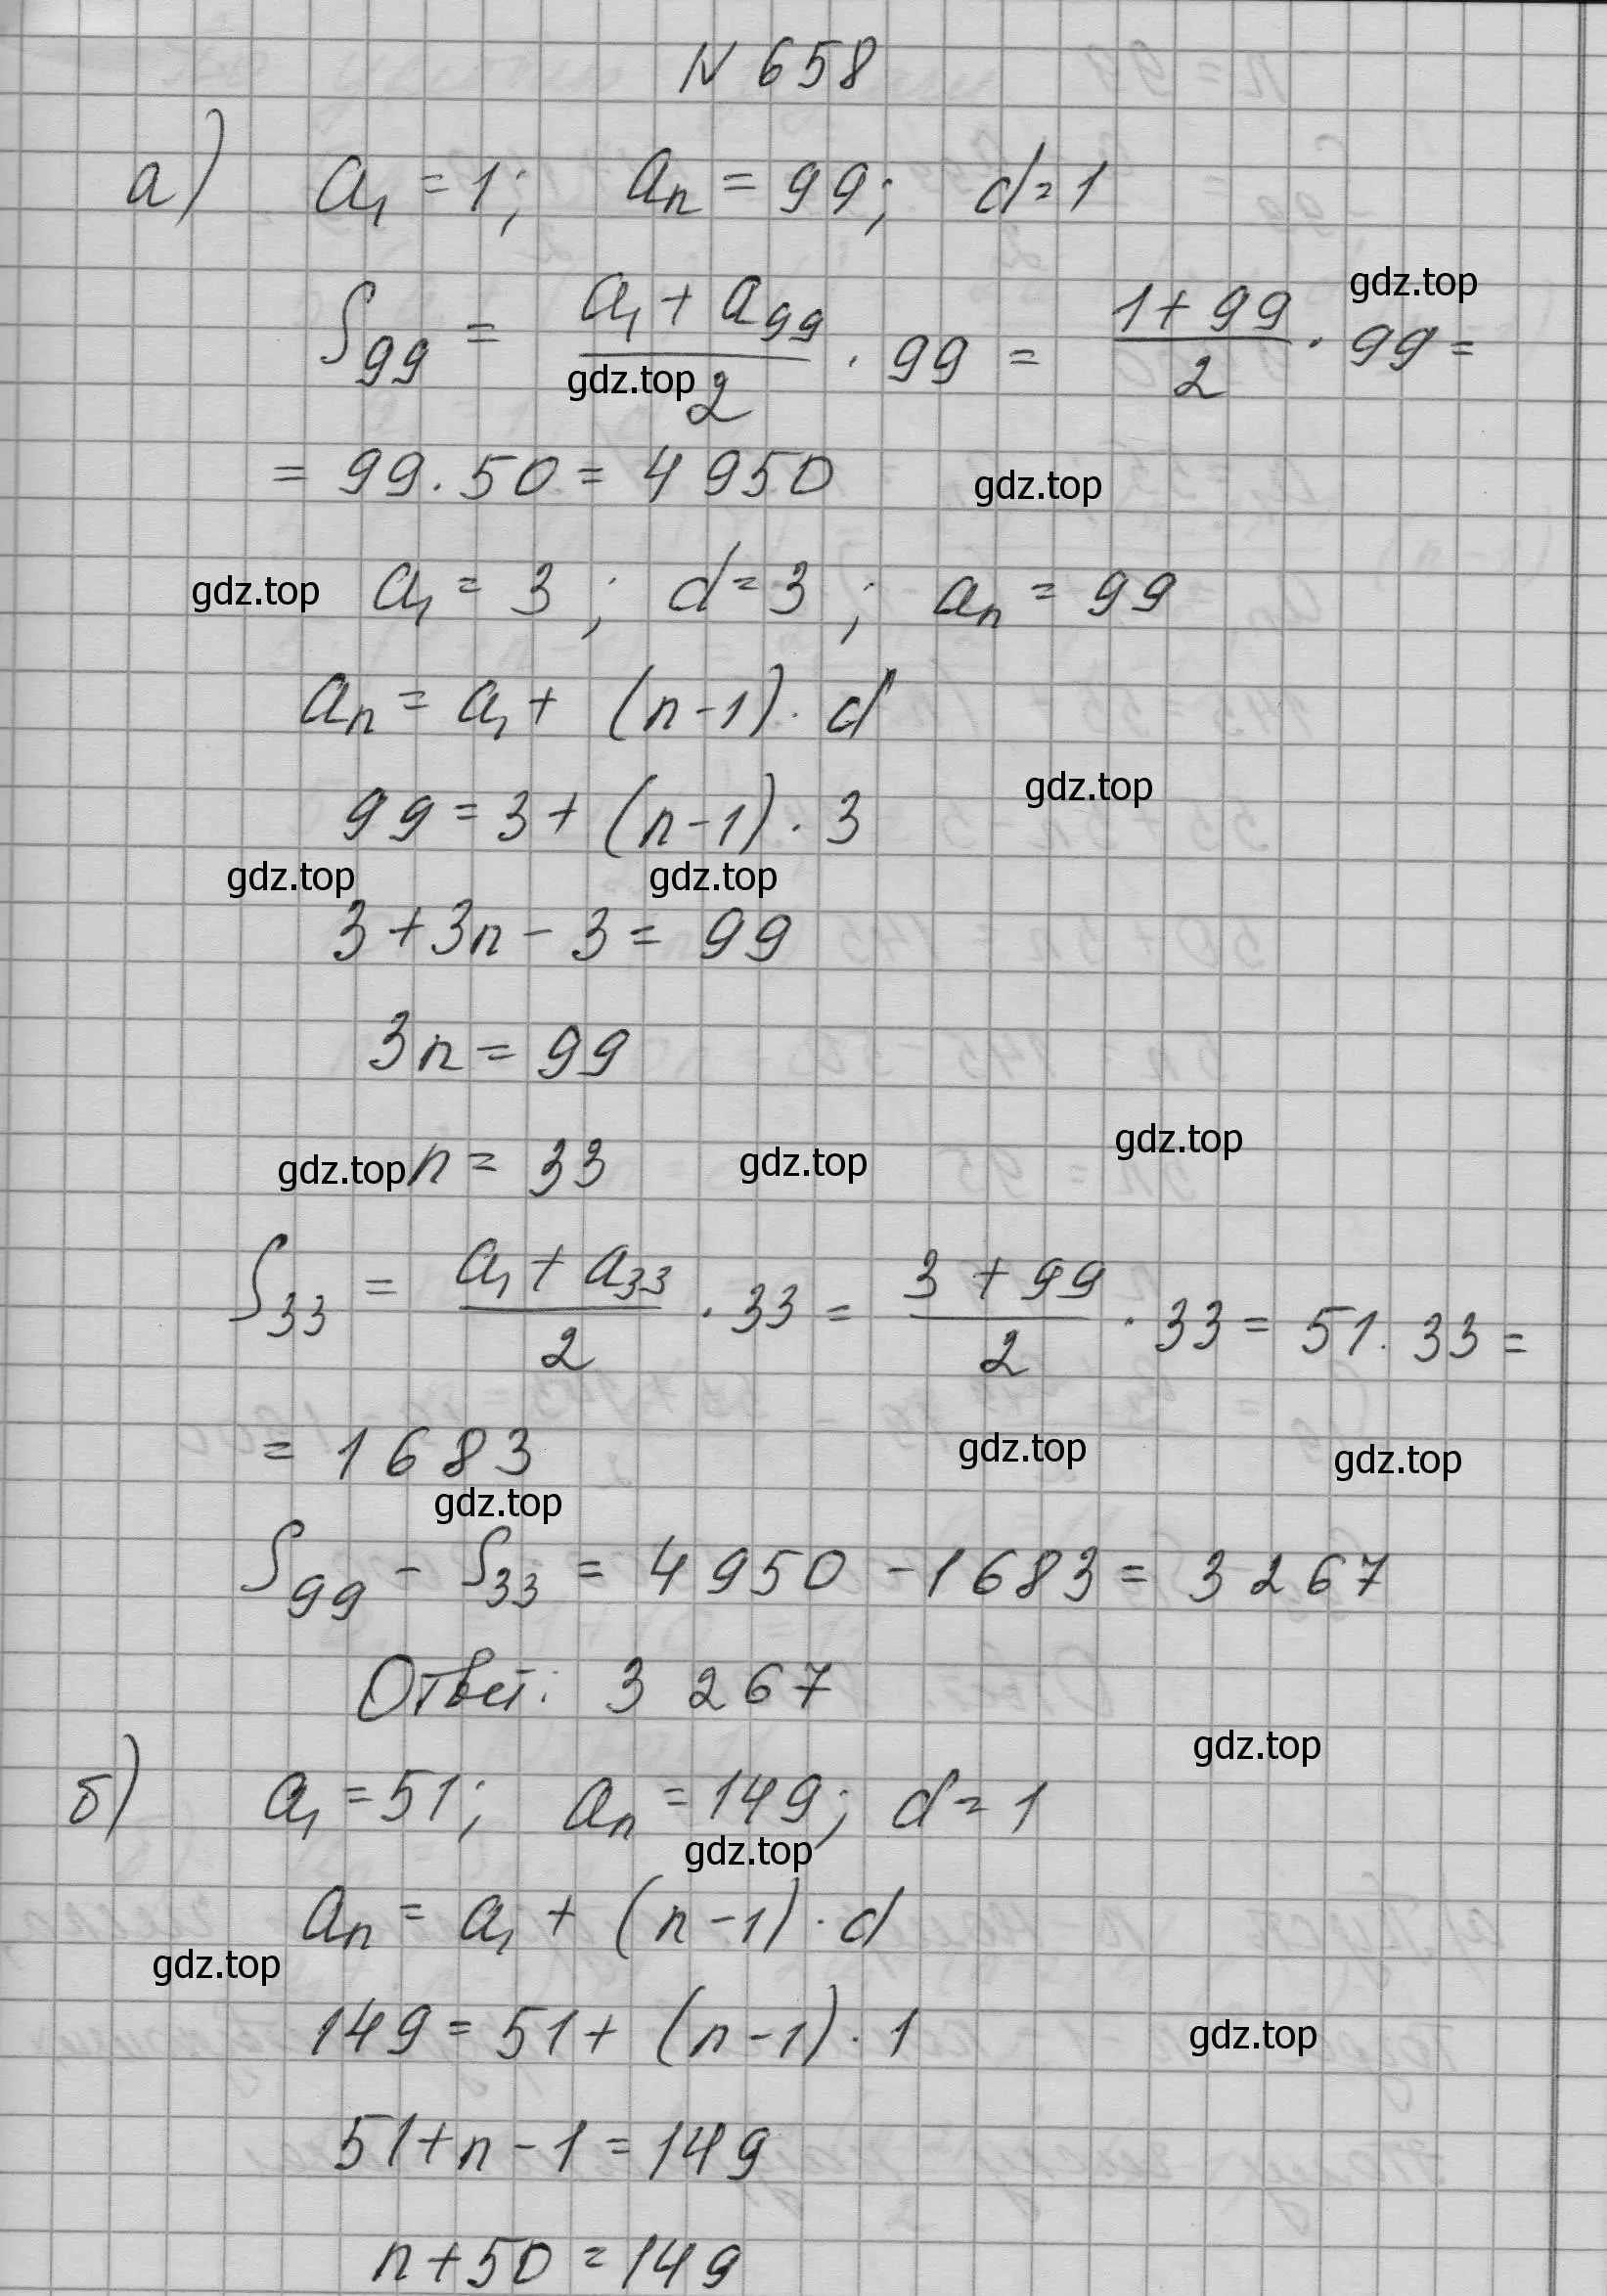 N 658
а) a₁ = 1; aₙ = 99; d = 1
gdz.top
S₉₉ = (a₁ + a₉₉)/2 · 99 = (1 + 99)/2 · 99 =
gdz.top
= 99 · 50 = 4950 gdz.top
gdz.top a₁ = 3; d = 3; aₙ = 99
aₙ = a₁ + (n-1) · d
gdz.top
99 = 3 + (n-1) · 3
gdz.top gdz.top
3 + 3n - 3 = 99
3n = 99
gdz.top n = 33 gdz.top gdz.top
S₃₃ = (a₁ + a₃₃)/2 · 33 = (3 + 99)/2 · 33 = 51 · 33 =
= 1683 gdz.top gdz.top
gdz.top
S₉₉ - S₃₃ = 4950 - 1683 = 3267
Ответ: 3 267
gdz.top
б) a₁ = 51; aₙ = 149; d = 1
gdz.top
aₙ = a₁ + (n-1) · d
gdz.top
149 = 51 + (n-1) · 1 gdz.top
51 + n - 1 = 149
n + 50 = 149